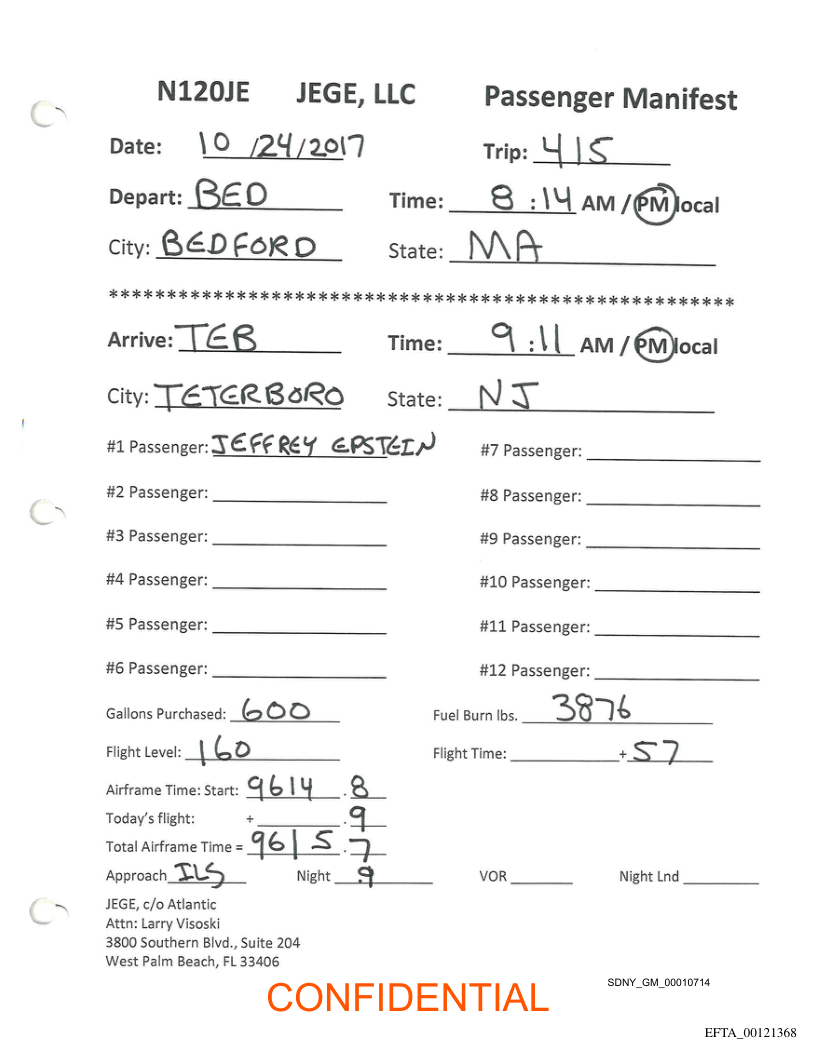 N120JE JEGE, LLC Passenger Manifest
Date: 10/24/2017 Trip: 415
Depart: BED Time: 8:14 AM / PM local
City: BEDFORD State: MA
******************************************************
Arrive: TEB Time: 9:11 AM / PM local
City: TETERBORO State: NJ
#1 Passenger: JEFFREY EPSTEIN #7 Passenger:
#2 Passenger: #8 Passenger:
#3 Passenger: #9 Passenger:
#4 Passenger: #10 Passenger:
#5 Passenger: #11 Passenger:
#6 Passenger: #12 Passenger:
Gallons Purchased: 600 Fuel Burn lbs. 3876
Flight Level: 160 Flight Time: + 57
Airframe Time: Start: 9614 .8
Today's flight: + .9
Total Airframe Time = 9615 .7
Approach ILS Night .9 VOR Night Lnd
JEGE, c/o Atlantic
Attn: Larry Visoski
3800 Southern Blvd., Suite 204
West Palm Beach, FL 33406
SDNY_GM_00010714
CONFIDENTIAL
EFTA_00121368